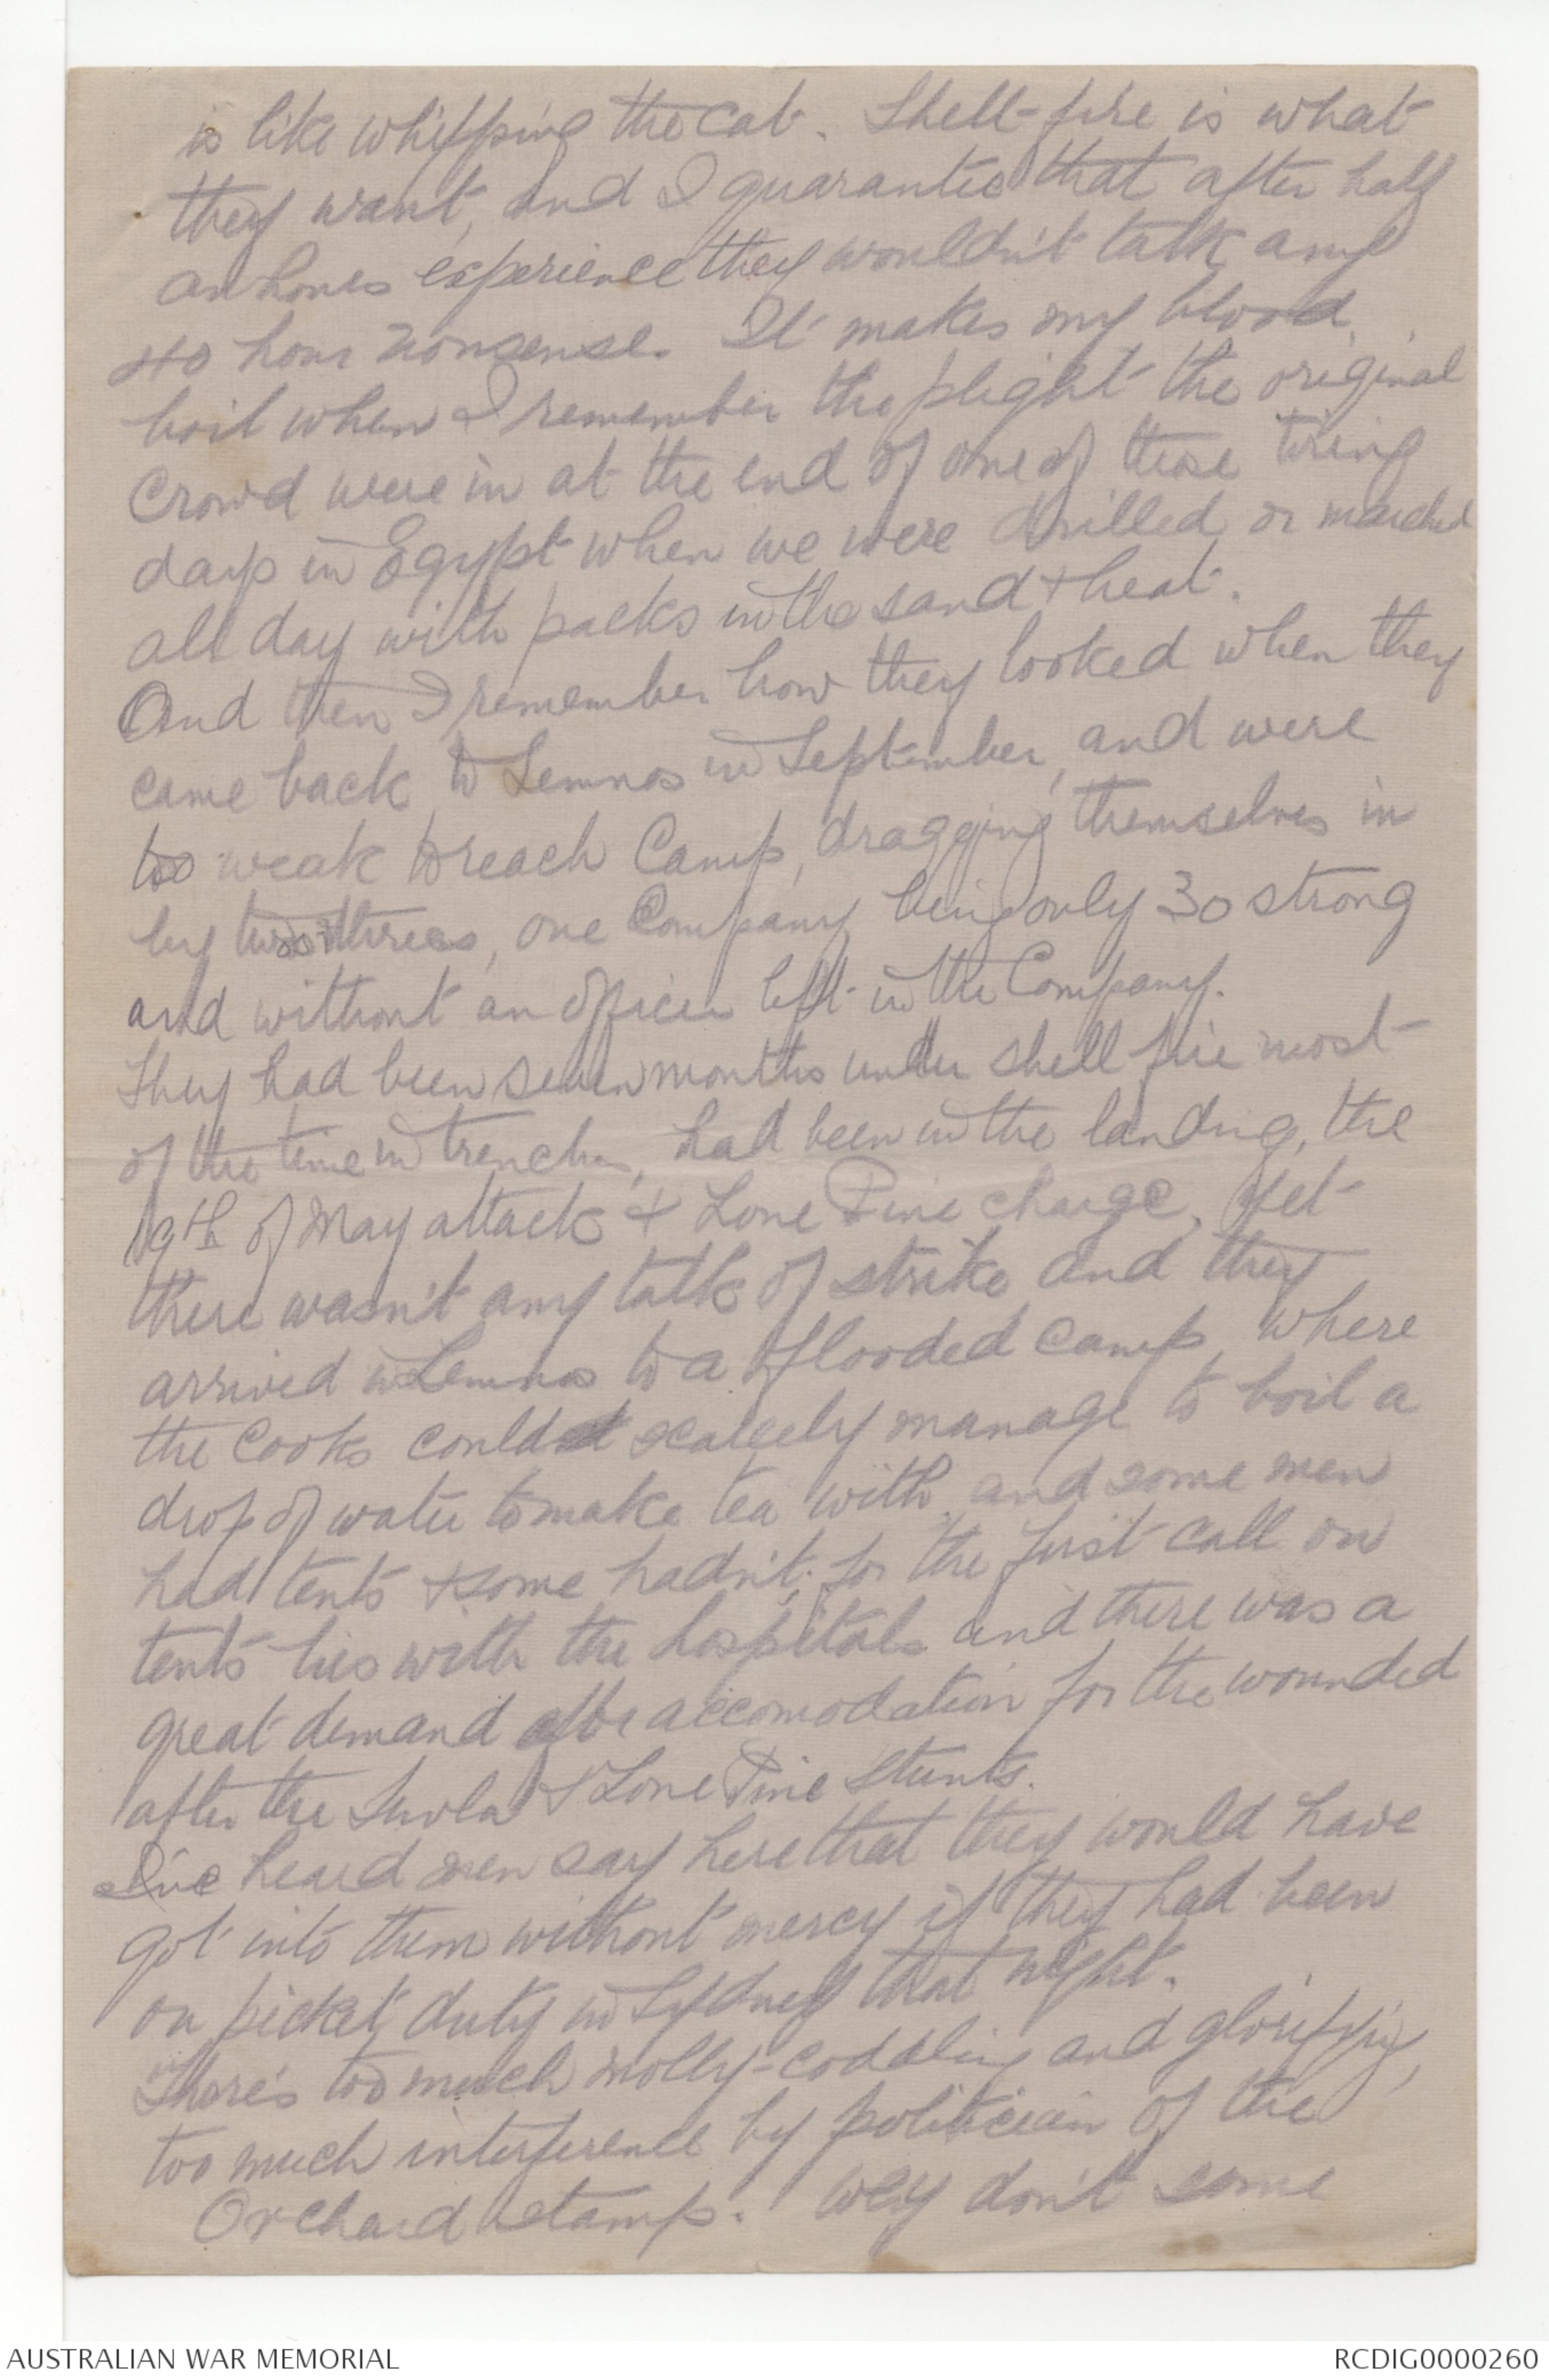 is like whipping the cat. Shell-fire is what
they want, and I guarantee that after half
an hours experience they wouldn't talk any
40 hour nonsense. It makes my blood
boil when I remember the plight the original
crowd were in at the end of one of those tiring
days in Egypt when we were drilled or marched
all day with packs in the sand & heat.
And then I remember how they looked when they
came back to Lemnos in September, and were
too weak to reach Camp, dragging themselves in
by twos & threes, one Company being only 30 strong
and without an officer left in the Company.
They had been seven months under shell fire most
of the time in trenches, had been in the landing, the
19th of May attack & Lone Pine charge. Yet
there wasn't any talk of strike and they
arrived in Lemnos to a flooded camp where
the cooks could scarcely manage to boil a
drop of water to make tea with and some men
had tents & some hadn't; for the first call on
tents lies with the hospitals and there was a
great demand for accomodation for the wounded
after the Suvla & Lone Pine stunts.
I've heard men say here that they would have
got into them without mercy if they had been
on picket duty in Sydney that night.
There's too much molly-coddling and glorifying,
too much interference by politician of the
Orchard stamp. Why don't some
AUSTRALIAN WAR MEMORIAL
RCDIG0000260